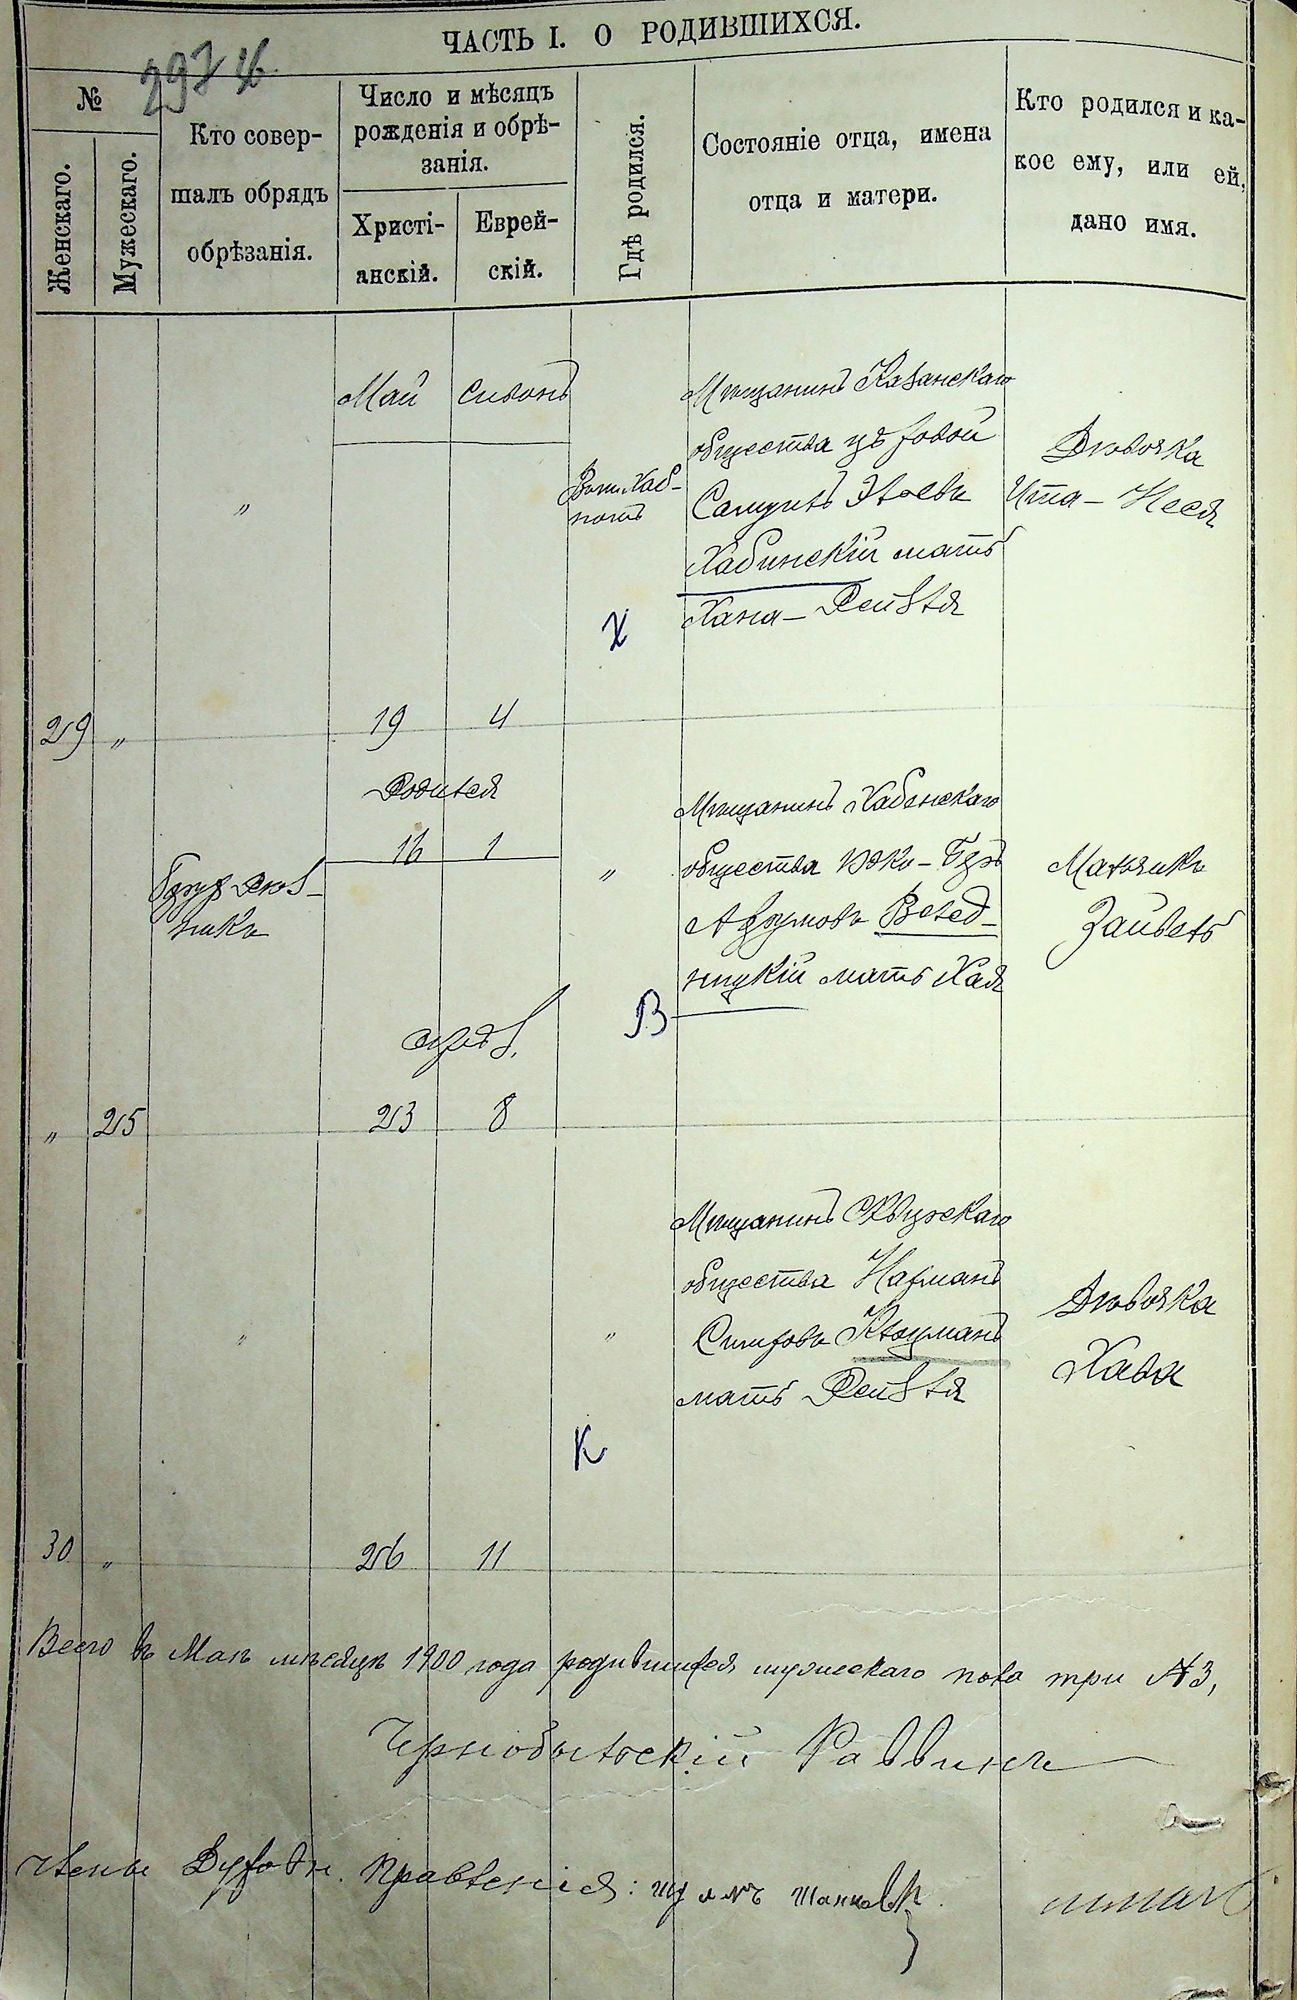 ЧАСТЬ I. О РОДИВШИХСЯ.
297
№
Женскаго.
Мужескаго.
Кто совер-
шалъ обрядъ
обрѣзанія.
Число и мѣсяцъ
рожденія и обрѣ-
занія.
Христі-
анскій.
Еврей-
скій.
Гдѣ родился.
Состояніе отца, имена
отца и матери.
Кто родился и ка-
кое ему, или ей,
дано имя.
Май
Сивонъ
Мѣщанинъ Казанскаго
общества
Хабинскій мать
Хана - Рейзля
Дѣвочка
Ита - Неся
Х
29 „
19 4
Родился
16 1
Мѣщанинъ Хабенскаго
общества
Волед-
ницкій мать Хая
Мальчикъ
Зайвель
В
обрѣз.
„ 25
23 8
Мѣщанинъ Сквирскаго
общества Нахманъ
Симховъ Клоцманъ
мать Рейзля
Дѣвочка
Хава
К
30 „
26 11
Всего въ Маѣ мѣсяцѣ 1900 года родившихся мужескаго пола три № 3,
Чернобыльскій Раввинъ
Члены Духовн. Правленія: